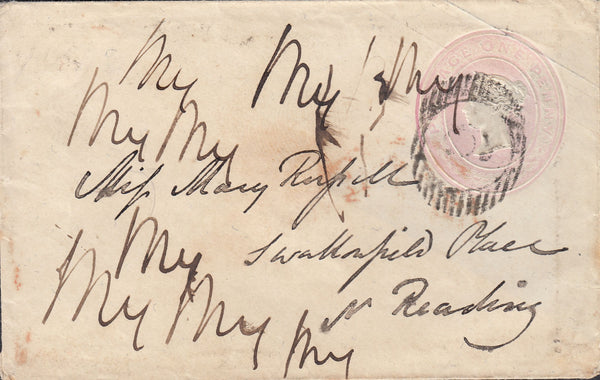 My My & My
My My
Miſs Mary Ruſsell
My Swallowfield Place
My My My Nr Reading
POSTAGE ONE PENNY